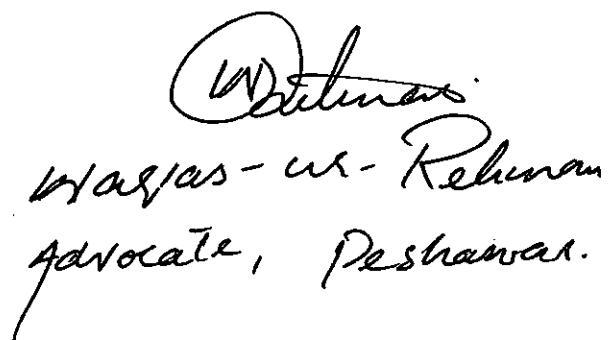 Waqas-ur-Rehman
Advocate, Peshawar.